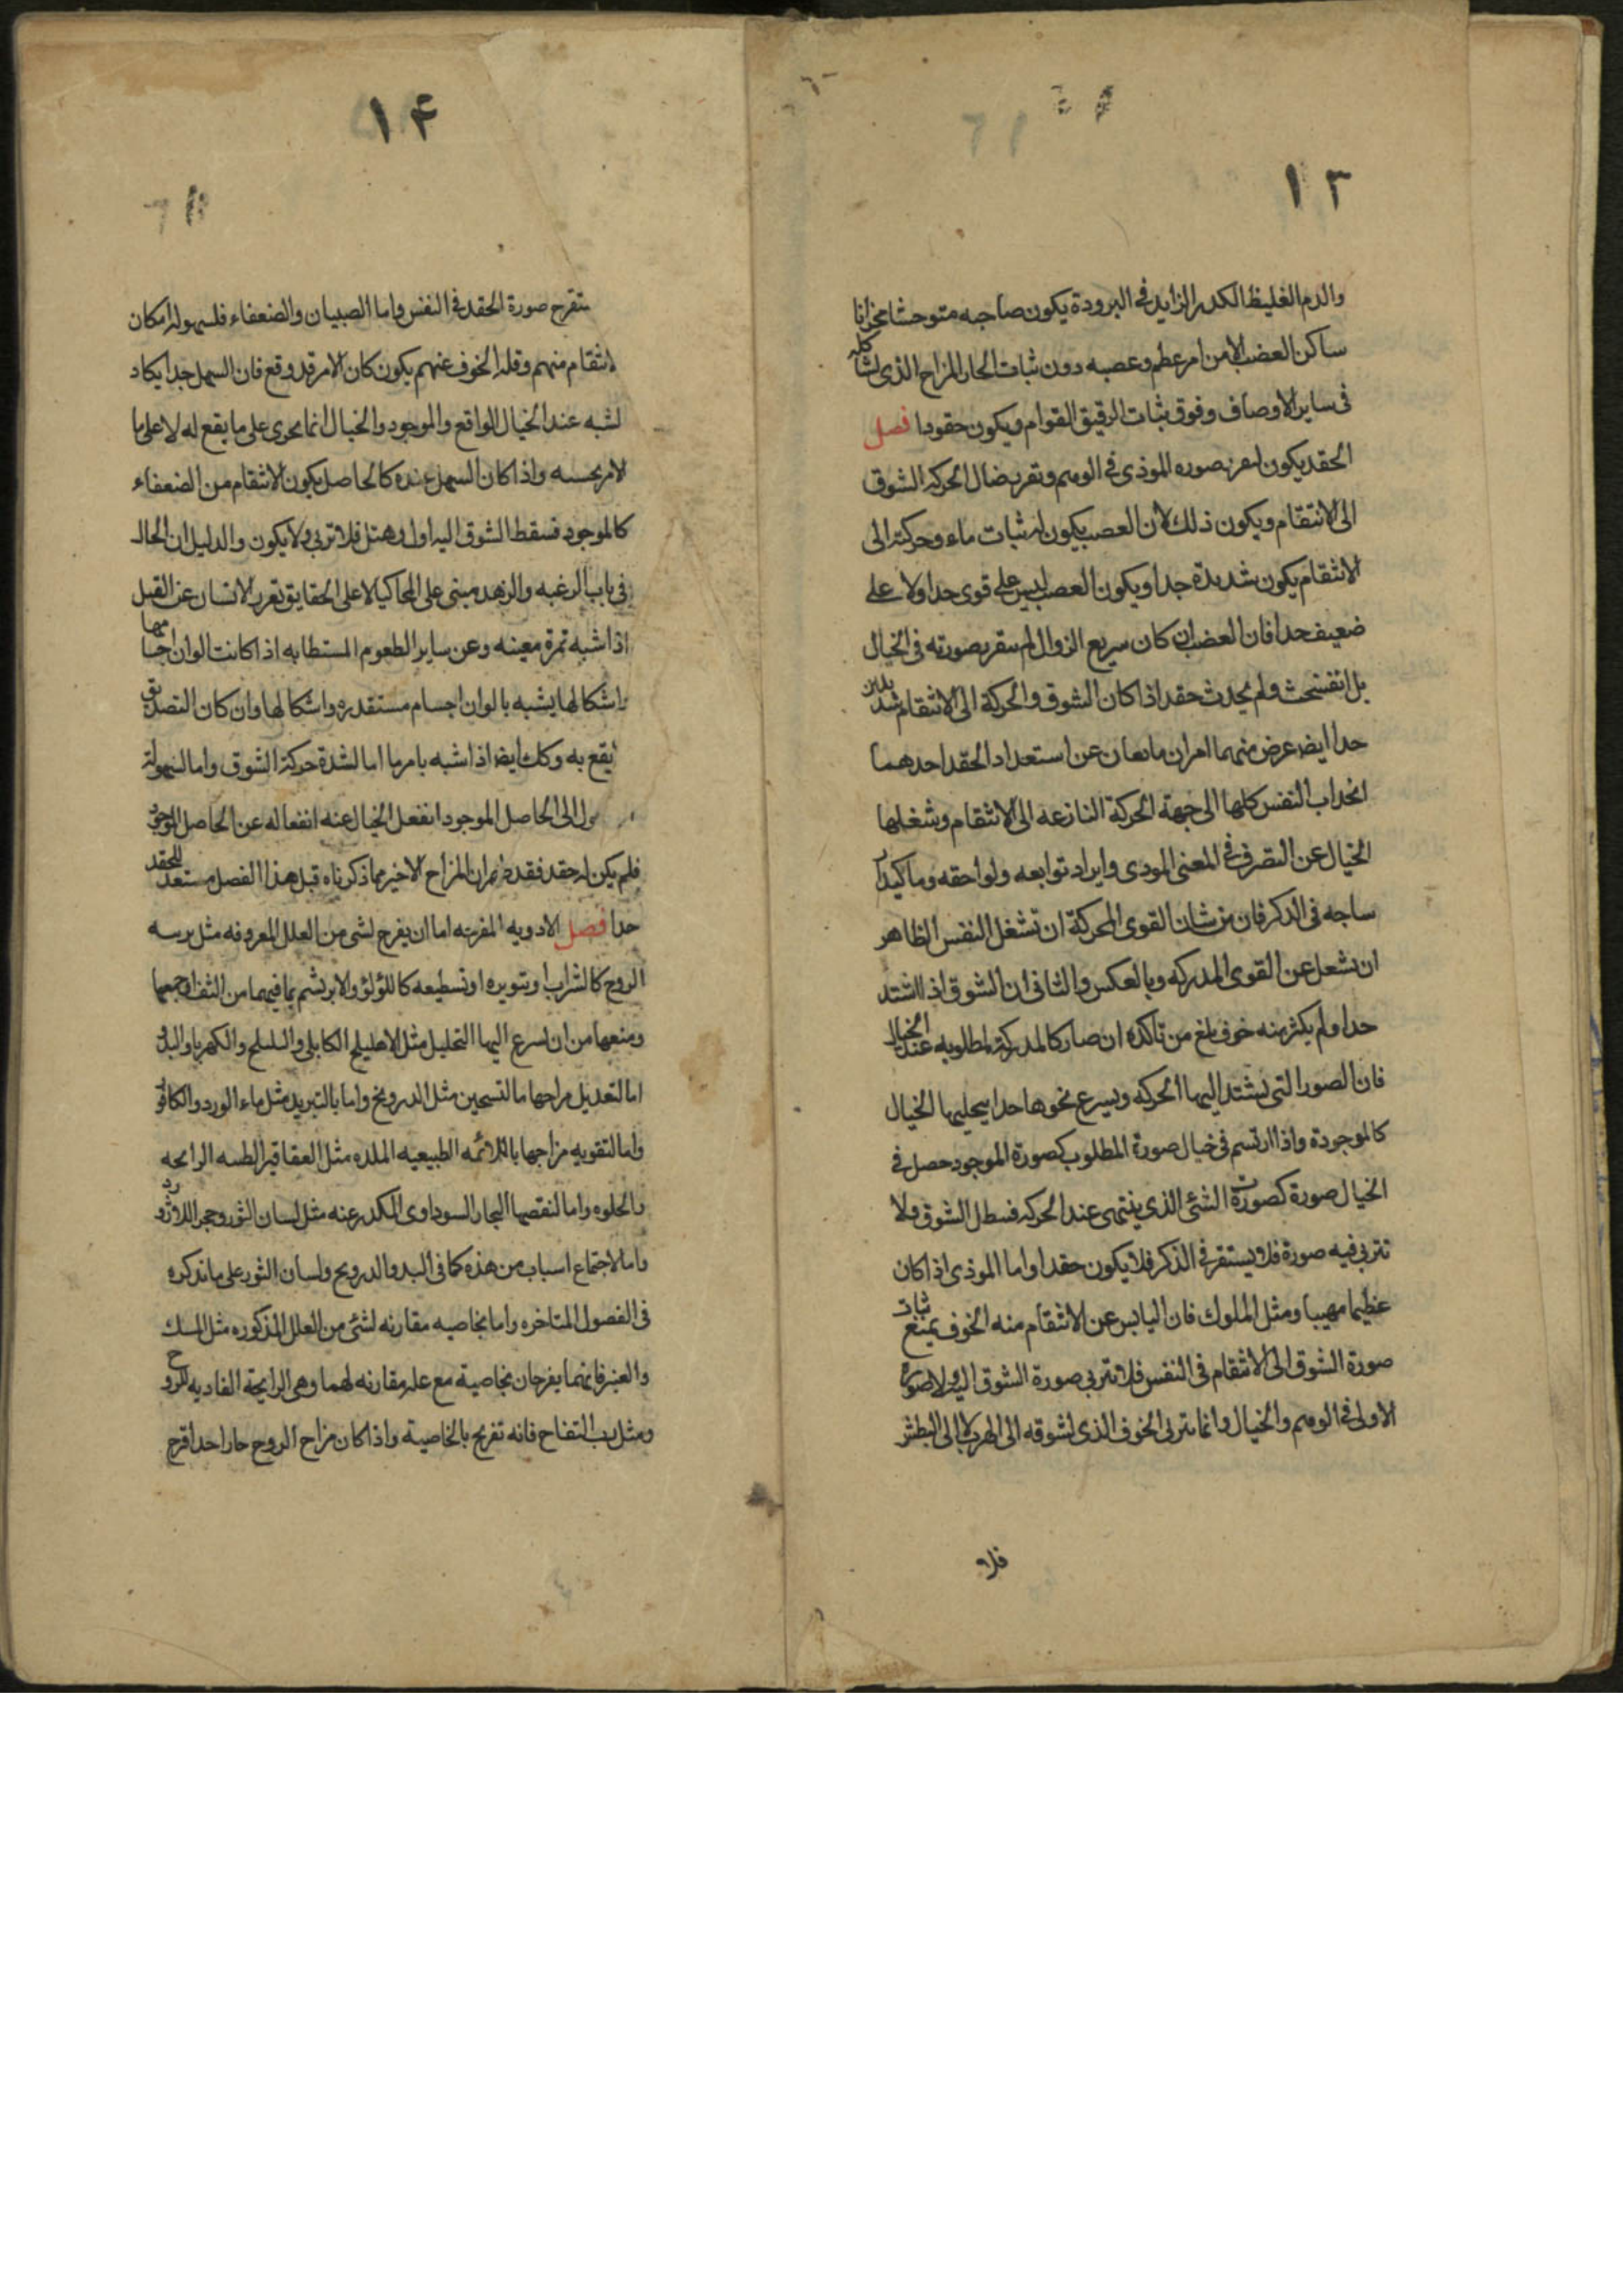 ١٣
والدم الغليظ الكدر الزايد في البرودة يكون صاحبه متوحشا محزانا
ساكن الغضب الا من امر عظم وعصبه دون ثبات الحار المزاح الذى لشا كله
في ساير الاوصاف وفوق ثبات الرقيق القوام ويكون حقودا فصل
الحقد يكون صوره الموذى في الوهم وتقر الحركه الشوق
الى الانتقام ويكون ذلك لان العصب يكون له ثبات ماء وحركته الى
الانثقام يكون شديدة جدا ويكون العصب ليس على قوى حدا ولا على
ضعيف حدا فان الغضب ان كان سريع الزوال لم ستقر صورته فى الخيال
بل انفسخت ولم يحدث حقد اذا كان الشوق والحركة الى الانثقام شديدين
حدا ايضا عرض منهما امران مانعان عن استعداد الحقد احدهما
انحداب النفس كلها الى جهة الحركة النازعه الى الانثقام وشغلها
الخيال عن التصرف في المعنى المودى وايراد توابعه ولواحقه
فى الذكر فان من شان القوى المحركة ان تشغل النفس الظاهر
ان شعل عن القوى المدركه وبالعكس والثانى ان الشوق اذا اشتد
حدا ولم يكثر منه خوف بلغ من تاكده ان صار كالمدركة لمطلوبه عند الخيال
فان الصور التى تشتد اليها الحركه ويسرع نحوها حدا يحليها الخيال
كالموجودة واذا ارتسم فى خيال صورة المطلوب كصورة الموجود حصل في
الخيال صورة كصورة الشئ الذى ينتهى عند الحركه فسطل الشوق ولا
تتربى فيه صورة فلا يستقر في الذكر فلا يكون حقدا واما الموذى اذا كان
عظيما مهيبا ومثل الملوك فان اليابس عن الانثقام منه الخوف يمنع ثبات
صورة الشوق الى الانثقام فى النفس فلا تتربى صورة الشوق اليه ولا صورة
الاولى في الوهم والخيال وانما تتربى الخوف الذى لشوقه الى الهرب لا الى البطش
فلا
١۴
متقرح صورة الحقد في النفس واما الصبيان والضعفاء فلسهوله امكان
لانثقام منهم وقله الخوف عنهم يكون كان الامر قد وقع فان السهل جدا يكاد
لشبه عند الخيال الواقع والموجود والخيال انما يحرى على ما يقع له لا على ما
لامر بحسبه واذا كان السهل عنده كالحاصل يكون الانثقام من الضعفاء
كالموجود فسقط الشوق اليه اول فلا تربى ولا يكون والدليل ان الحال
فى باب الرغبه والزهد مبنى على المحاكيا لا على الحقايق تقرر الانسان عن القبل
اذا شبه تمرة معينه وعن ساير الطعوم المستطابه اذا كانت الوان اجسامها
واشكالها يشبه بالوان اجسام مستقدره واشكالها وان كان التصديق
يقع به وكك ايضا اذا شبه بامر ما اما لشدة حركة الشوق واما لسهولة
الى الحاصل الموجود انفعل الخيال عنه انفعاله عن الحاصل الموجود
فلم يكن له حقد فقد ان المزاح الاخير مما ذكرناه قبل هذا الفصل مستعد للحقد
حدا فصل الادويه المفرحه اما ان يفرح لشى من العلل المعروفه مثل برسه
الروح كالشراب او تنويره او تسطيعه كاللؤلؤ والابريشم بما فيهما من الشفا وجمعها
ومنعها من ان لسرع اليها التحليل مثل الاهليلج الكابلى والبلسلج والكهربا والبلد
اما لتعديل مراجها مالتسحين مثل الدرونج واما بالتبريد مثل ماء الورد والكافور
واما لتقويه مزاجها بالملائمه الطبيعيه الملده مثل العقاقير الطسه الرايحه
والحلوه واما لنقصها البحار السوداوى المكدر عنه مثل لسان الثور وحجر اللازورد
واما لاجتماع اسباب من هذه كما فى البدو الدرويح ولسان الثور على ما نذكره
فى الفصول المتاخره واما بخاصيه مقارنه لشئ من العلل المذكوره مثل المسك
والعنبر فانهما يفرحان بخاصية مع عله مقارنه لهما وهى الرايحة الفاديه للروح
ومثل رب التفاح فانه تفريح بالخاصية واذا كان مزاح الروح حارا حدا فرح